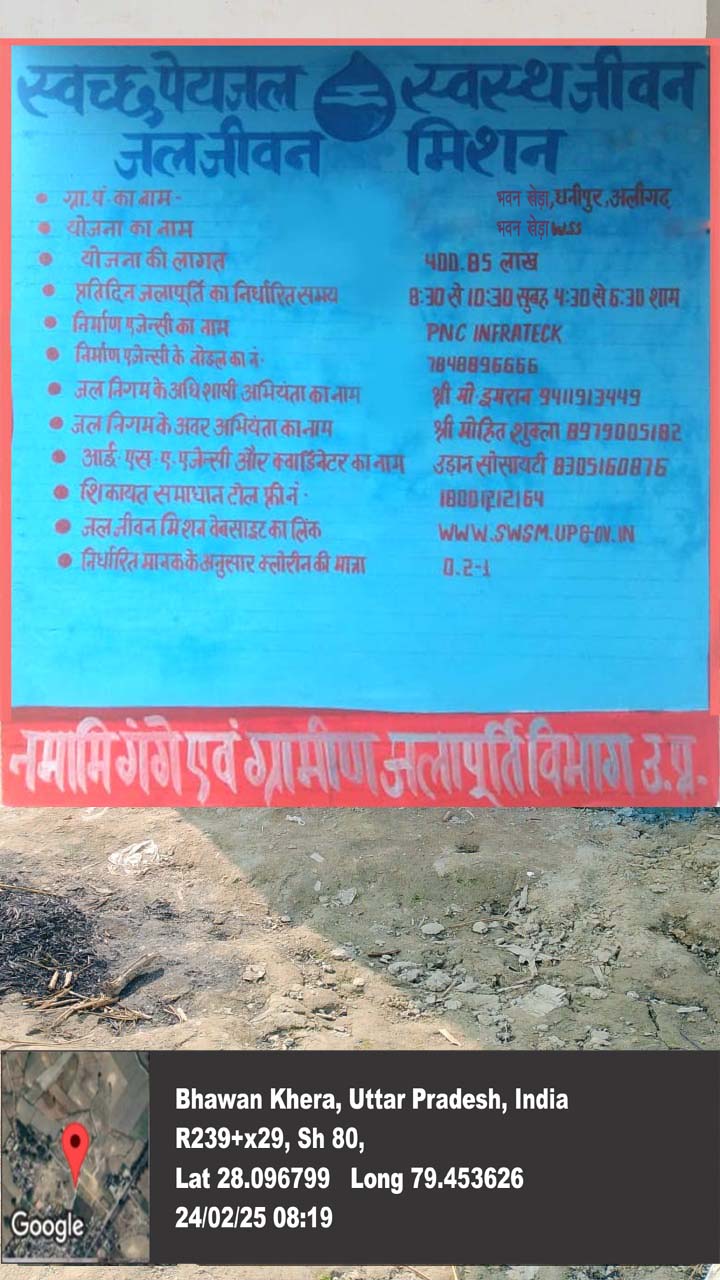 स्वच्छ पेयजल स्वस्थ जीवन
जल जीवन मिशन
ग्रा.पं. का नाम - भवन खेड़ा, धनीपुर, अलीगढ़
योजना का नाम भवन खेड़ा WSS
योजना की लागत 400.85 लाख
प्रतिदिन जलापूर्ति का निर्धारित समय 8:30 से 10:30 सुबह 4:30 से 6:30 शाम
निर्माण एजेन्सी का नाम PNC INFRATECK
निर्माण एजेन्सी के नोडल का नं. 7848896666
जल निगम के अधिशाषी अभियंता का नाम श्री मो. इमरान 9411913449
जल निगम के अवर अभियंता का नाम श्री मोहित शुक्ला 8979005182
आई. एस. ए. एजेन्सी और क्वार्डिनेटर का नाम उड़ान सोसायटी 8305160876
शिकायत समाधान टोल फ्री नं. 18001212164
जल जीवन मिशन वेबसाइट का लिंक WWW.SWSM.UPGOV.IN
निर्धारित मानक के अनुसार क्लोरीन की मात्रा 0.2-1
नमामि गंगे एवं ग्रामीण जलापूर्ति विभाग उ.प्र.
Bhawan Khera, Uttar Pradesh, India
R239+x29, Sh 80,
Lat 28.096799 Long 79.453626
24/02/25 08:19
Google